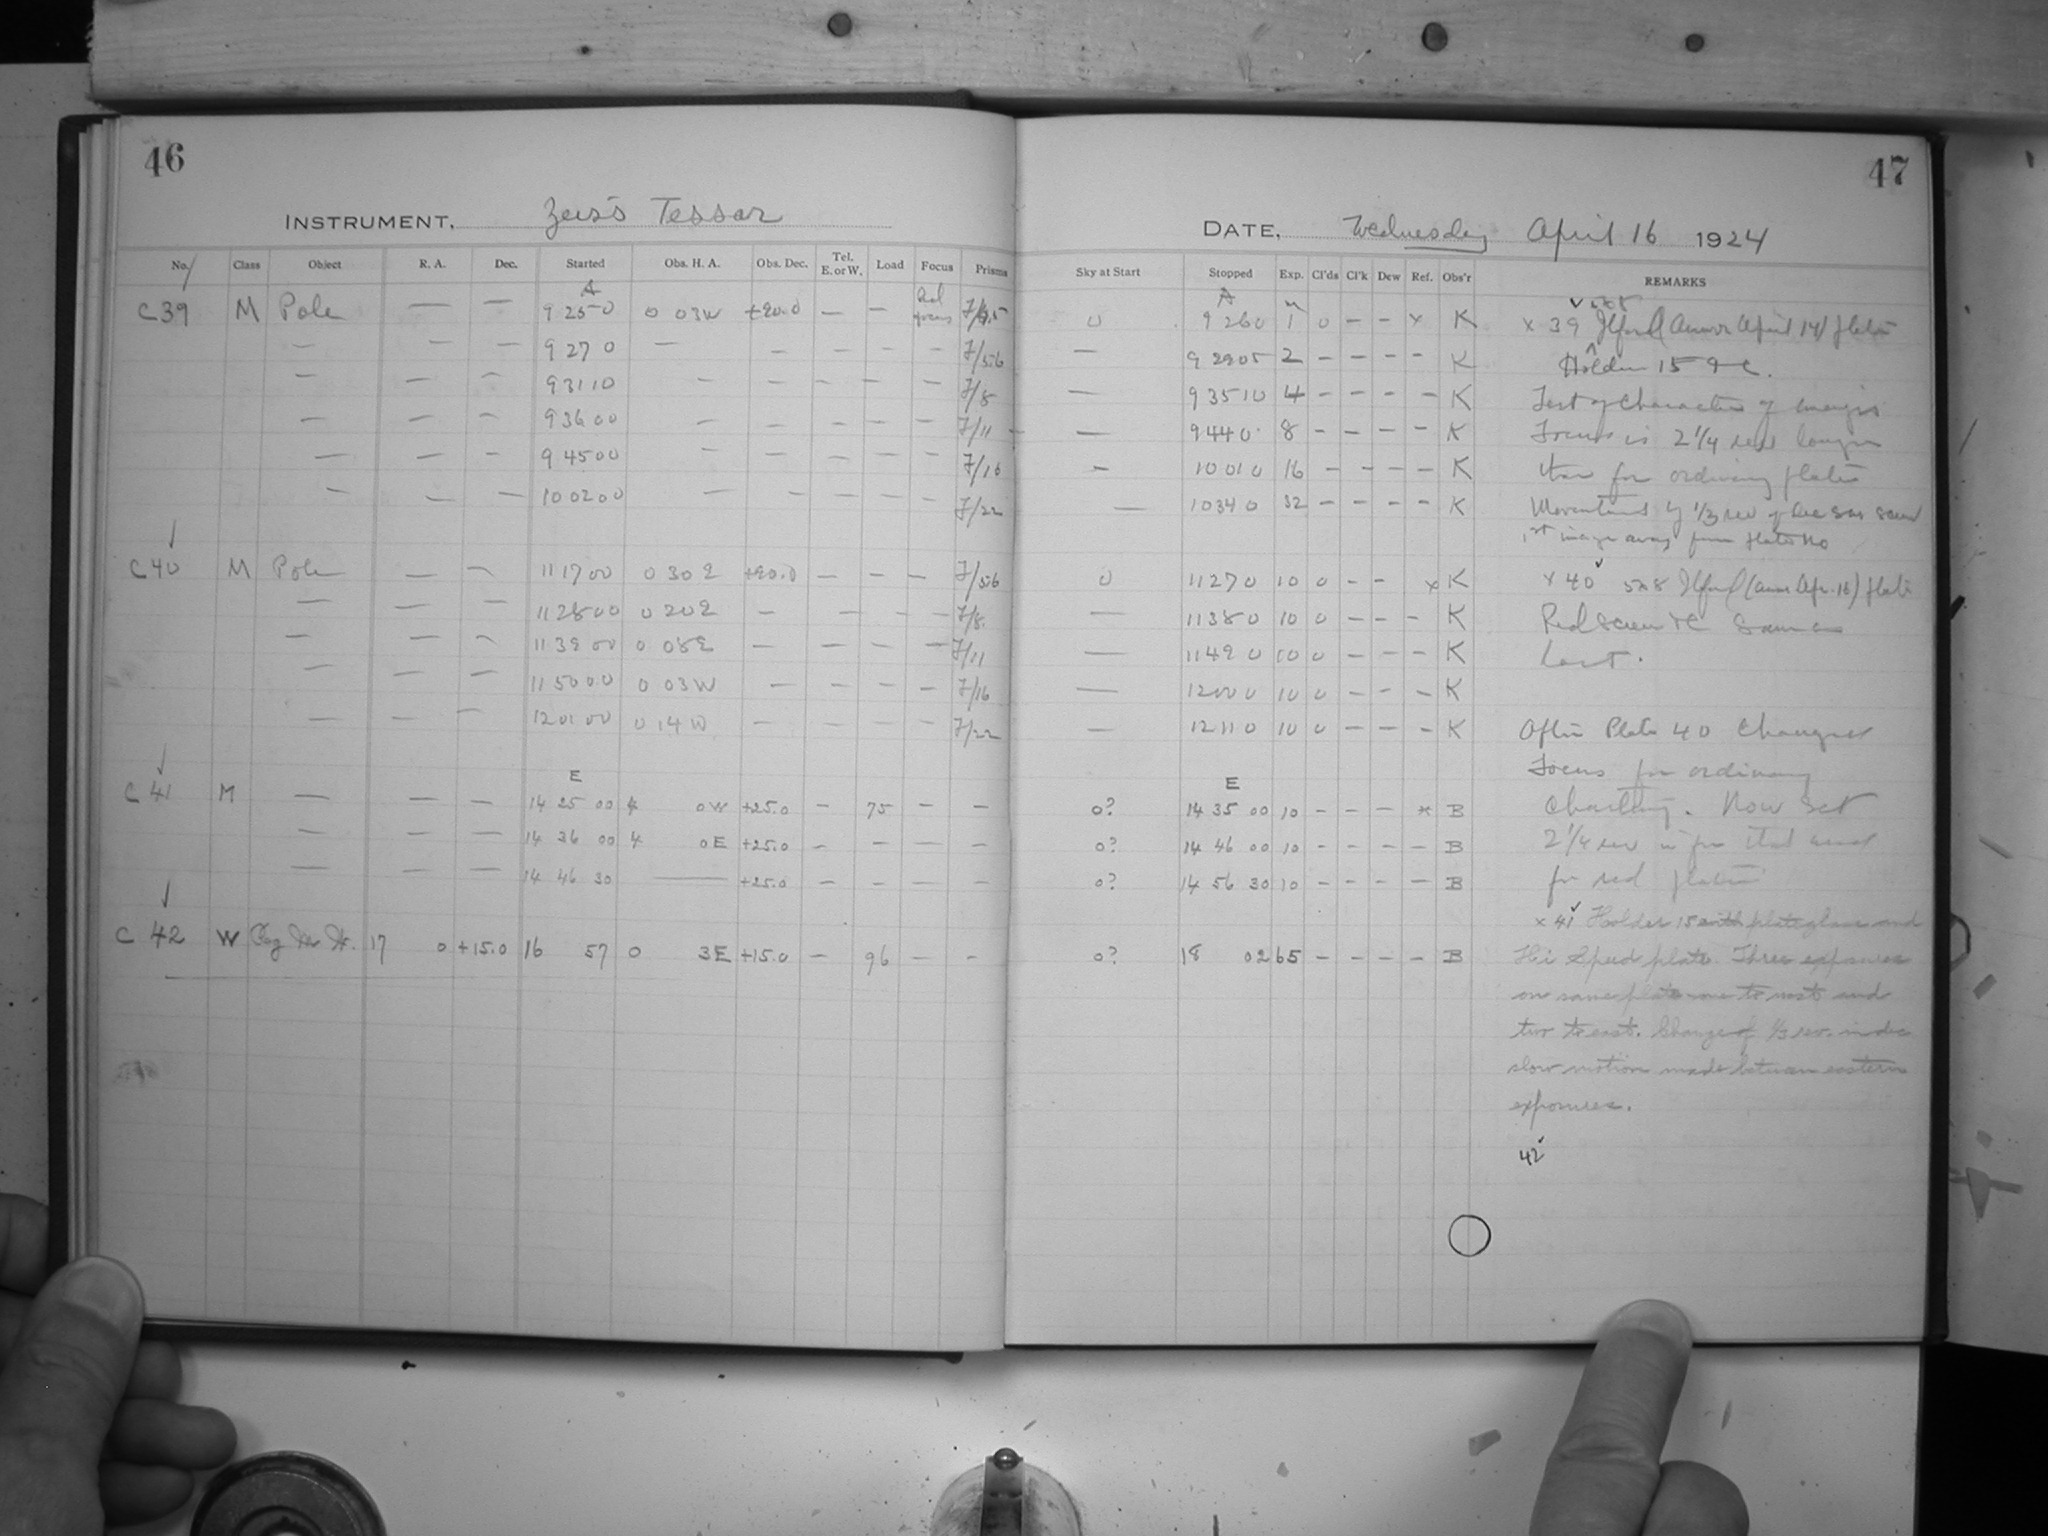 46
INSTRUMENT, Zeiss Tessar
No. Class Object R. A. Dec. Started Obs. H. A. Obs. Dec. Tel. E. or W. Load Focus Prisms
A
C39 M Pole — — 9 25 0 0 03W +90.0 — — Red focus F/4.5
— — — 9 27 0 — — — — — F/5.6
— — — 9 31 10 — — — — — F/8
— — — 9 36 00 — — — — — F/11
— — — 9 45 00 — — — — — F/16
— — — 10 02 00 — — — — — F/22
C40 M Pole — — 11 17 00 0 30E +90.0 — — — F/5.6
— — — 11 28 00 0 20E — — — — F/8
— — — 11 39 00 0 08E — — — — F/11
— — — 11 50 00 0 03W — — — — F/16
— — — 12 01 00 0 14W — — — — F/22
E
C 41 M — — — 14 25 00 4 0W +25.0 — 75 — —
— — — 14 36 00 4 0E +25.0 — — — —
— — — 14 46 30 — +25.0 — — — —
C 42 W 17 0 +15.0 16 57 0 3E +15.0 — 96 — —
47
DATE, Wednesday April 16 1924
Sky at Start Stopped Exp. Cl'ds Cl'k Dew Ref. Obs'r REMARKS
A m 5x8
0 9 26 0 1 0 — — x K x 39 Ilford April 14) plate
— 9 29 05 2 — — — — K Holder 15
— 9 35 10 4 — — — — K Test of Character of images
— 9 44 0 8 — — — — K Focus is 2 1/4 rev longer
— 10 01 0 16 — — — — K than for ordinary plates
— 10 34 0 32 — — — — K 1/3 rev of Dec
1st image away from plate No
0 11 27 0 10 0 — — x K x 40 5x8 Ilford Apr. 16) plate
— 11 38 0 10 0 — — — K Red Screen Same as
— 11 49 0 10 0 — — — K Last.
— 12 00 0 10 0 — — — K
— 12 11 0 10 0 — — — K After Plate 40 Changed
Focus for ordinary
E
0? 14 35 00 10 — — — x B Charting. Now Set
0? 14 46 00 10 — — — — B 2 1/4 rev in from that used
0? 14 56 30 10 — — — — B for red plates
x 41 Holder 15 with plateglass and
0? 18 02 65 — — — — B Hi Speed plate. Three exposures
on same plate one to west and
two to east. Change of 1/3 rev. in dec
slow motion made between eastern
exposures.
42